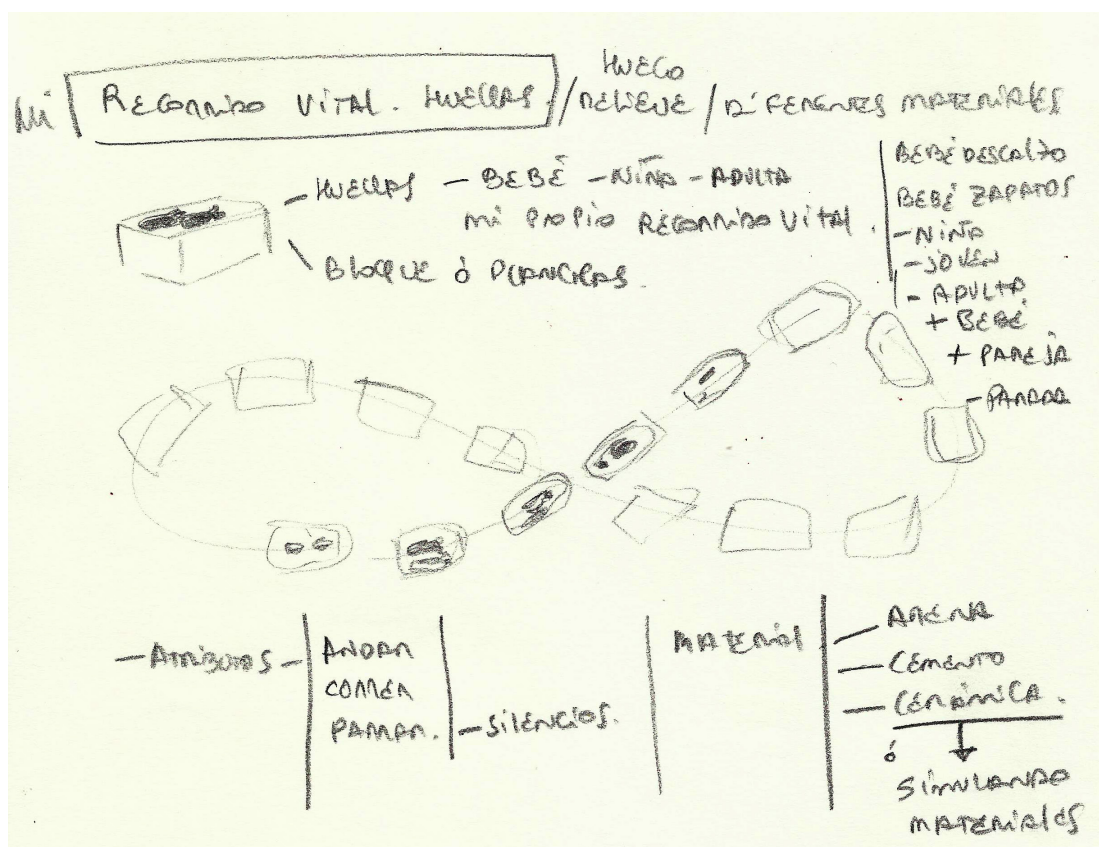 Mi RECORRIDO VITAL. HUELLAS. / HUECO RELIEVE / DIFERENTES MATERIALES
- HUELLAS - BEBÉ - NIÑA - ADULTA
MI PROPIO RECORRIDO VITAL.
BLOQUE Ó PLANCHAS.
BEBÉ DESCALZO
BEBÉ ZAPATOS
- NIÑA
- JOVEN
- ADULTA
+ BEBÉ
+ PAREJA
- PARADA
- ATRIBUTOS -
ANDAR
CORRER
PARAR.
- SILENCIOS.
MATERIAL
- ARENA
- CEMENTO
- CERÁMICA.
ó
SIMULANDO
MATERIALES